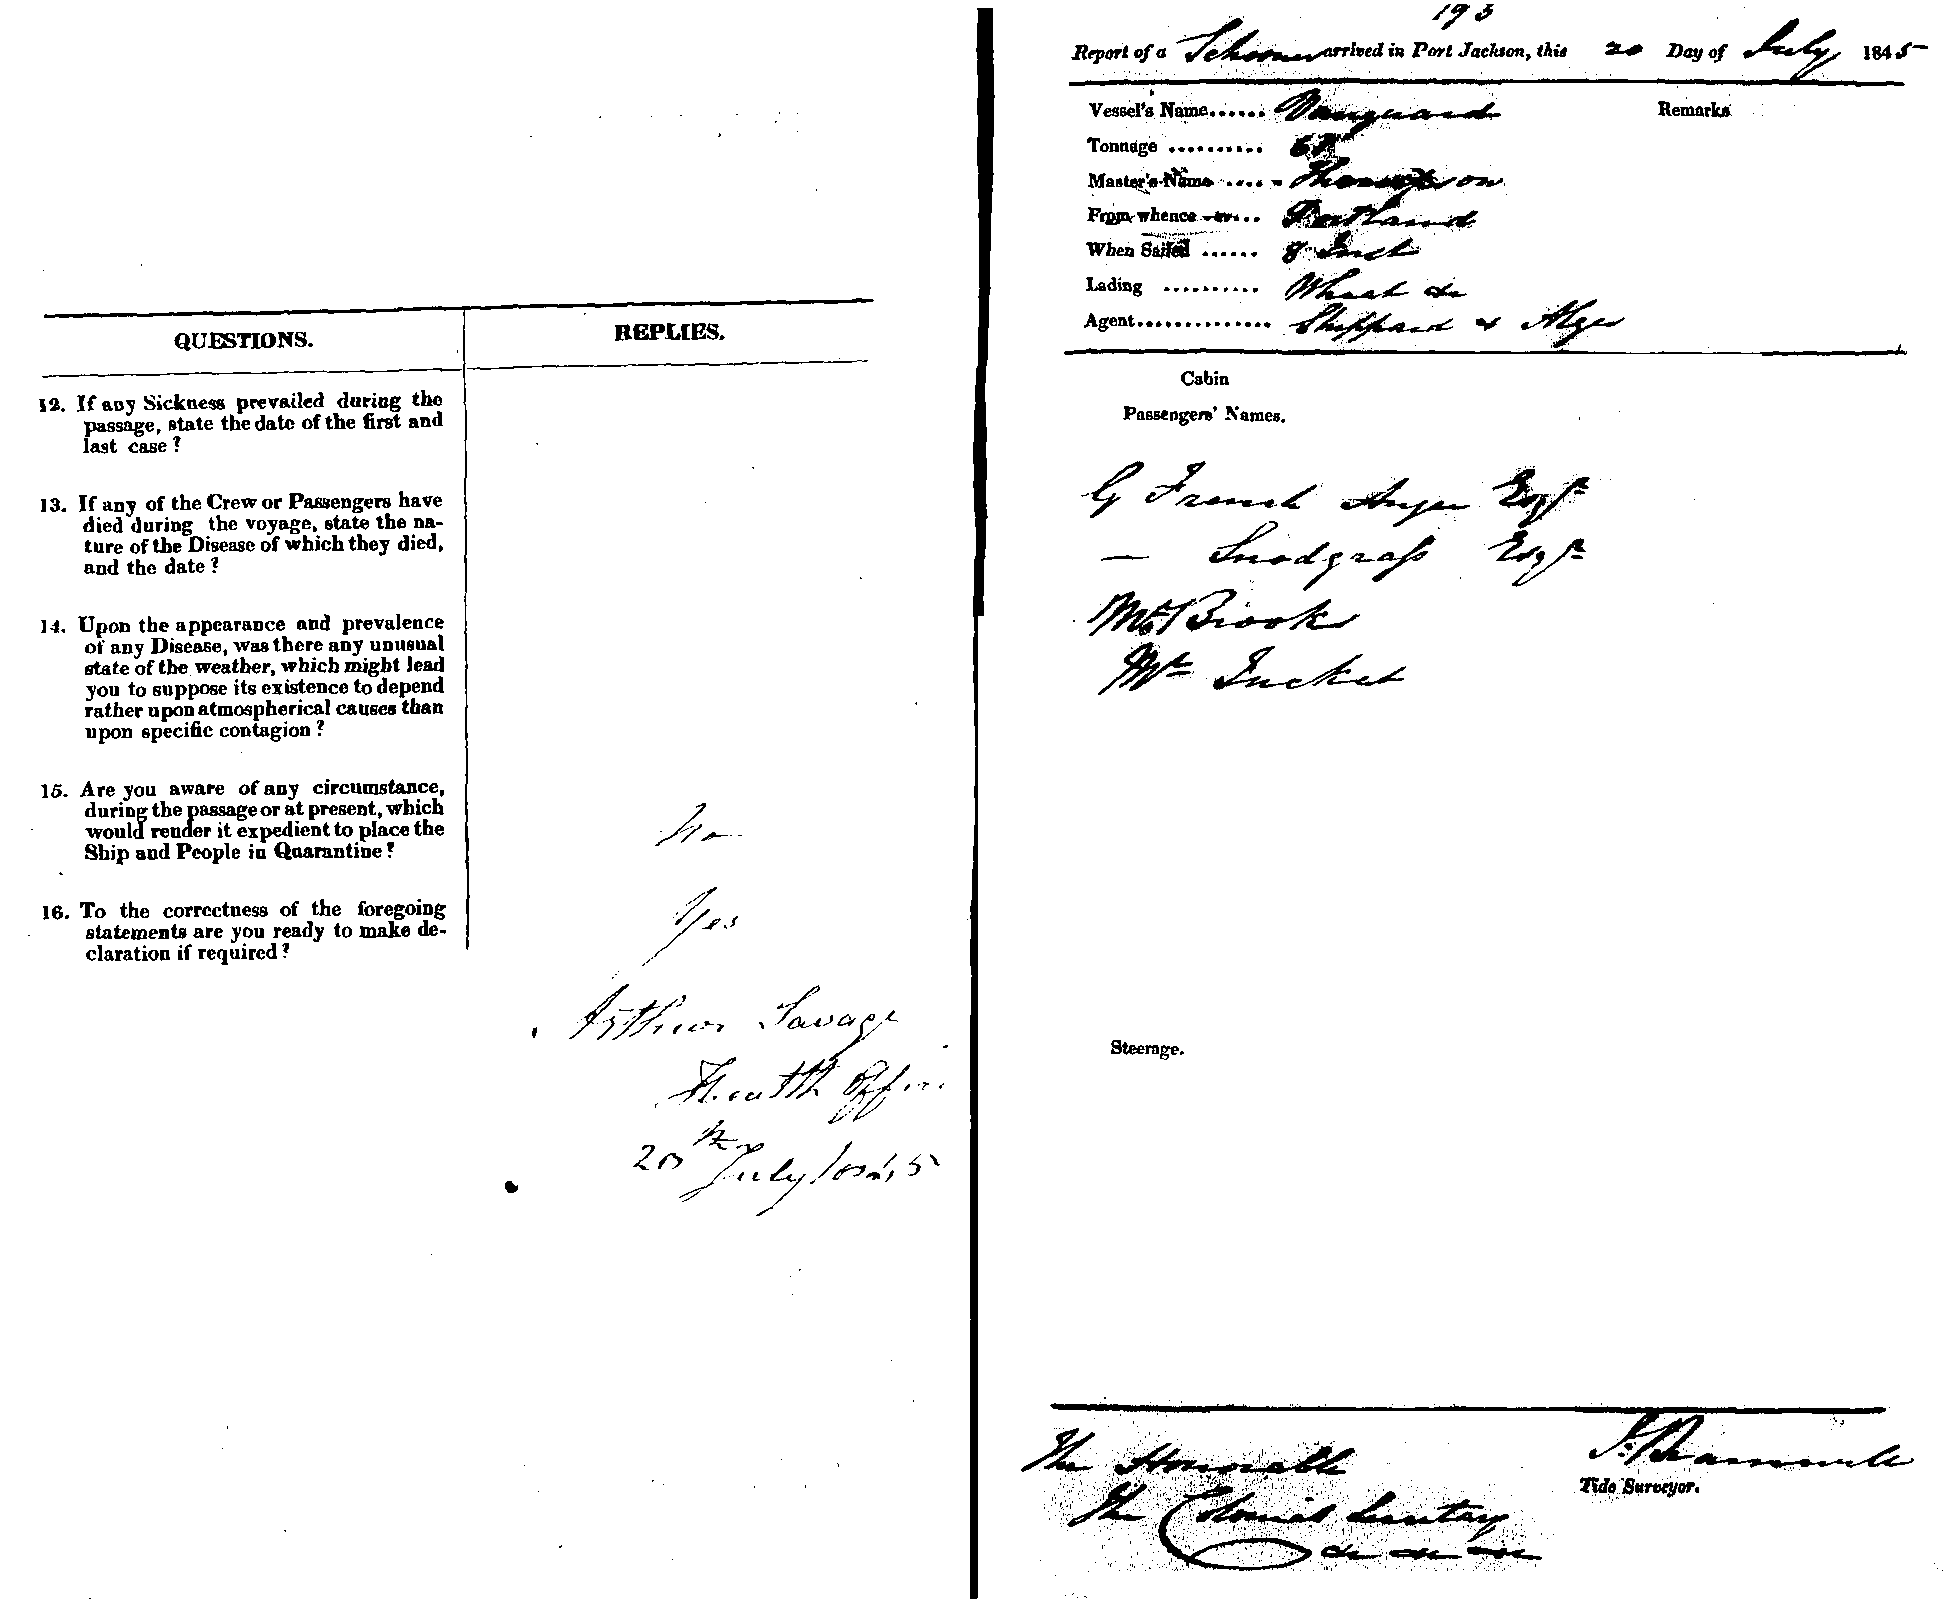 QUESTIONS.
REPLIES.
12. If any Sickness prevailed during the
passage, state the date of the first and
last case?
13. If any of the Crew or Passengers have
died during the voyage, state the na-
ture of the Disease of which they died,
and the date?
14. Upon the appearance and prevalence
of any Disease, was there any unusual
state of the weather, which might lead
you to suppose its existence to depend
rather upon atmospherical causes than
upon specific contagion?
15. Are you aware of any circumstance,
during the passage or at present, which
would render it expedient to place the
Ship and People in Quarantine?
No
16. To the correctness of the foregoing
statements are you ready to make de-
claration if required?
Yes
Arthur Savage
Health
20th July 1845
193
Report of a Schooner arrived in Port Jackson, this 20 Day of July 1845
Vessel's Name...... Vanguard
Remarks
Tonnage ..........
Master's Name ..... Thompson
From whence ...... Portland
When Sailed ...... 8 Inst
Lading .......... Wheat &c
Agent.............. Sheppard & Alger
Cabin
Passengers' Names.
G French Angas Esqr
— Snodgrass Esqr
Mr Brooks
Mr Tucket
Steerage.
The Honorable
The Colonial Secretary
&c &c &c
Tide Surveyor.